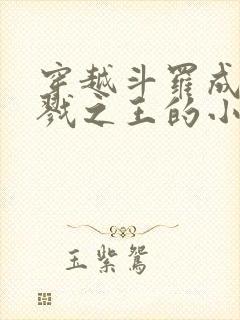 穿越斗罗成
戮之王的小
玉紫鸳